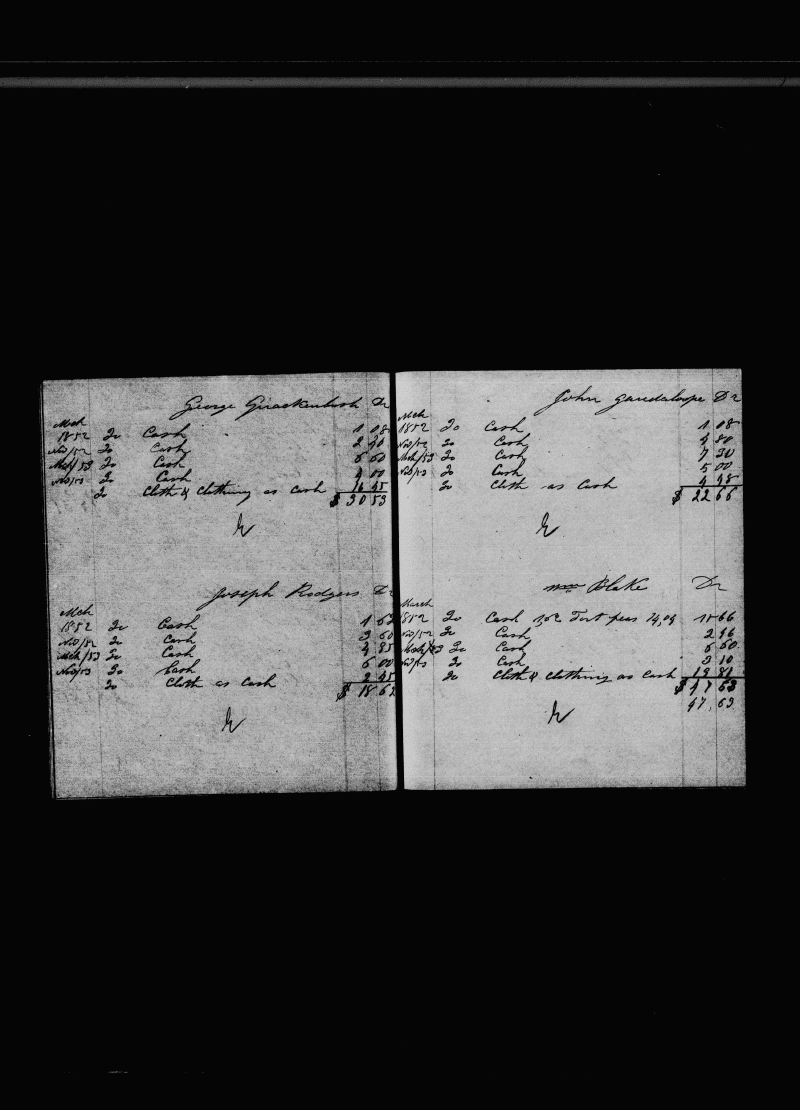 George Quackenbush Dr
Mch
1852 To Cash 1 08
Nov/52 To Cash 2 40
Mch/53 To Cash 6 60
Nov/53 To Cash 4 00
To Cloth & Clothing as Cash 16 45
$ 30 53
Joseph Rodgers Dr
Mch
1852 To Cash 1 62
Nov/52 To Cash 3 60
Mch/53 To Cash 4 95
Nov/53 To Cash 6 00
To Cloth as Cash 2 45
$ 18 62
John Guadaloupe Dr
Mch
1852 To Cash 1 08
Nov/52 To Cash 4 80
Mch/53 To Cash 7 30
Nov/53 To Cash 5 00
To Cloth as Cash 4 48
$ 22 66
Wm Blake Dr
March
1852 To Cash 1,62 14,04 15 66
Nov/52 To Cash 2 46
Mch/53 To Cash 6 60
Nov/53 To Cash 3 10
To Cloth & Clothing as Cash 19 81
$ 47 63
47,63